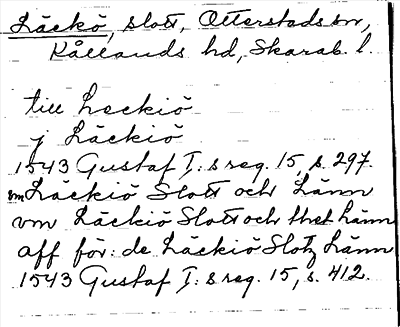 Läckö, slott, Otterstads sn,
Kållands hd, Skarab. l.
till Leckiö
j Läckiö
1543 Gustaf I: s reg. 15, s. 297.
vm Läckiö Slott och Länn
vm Läckiö Slott och thet Länn
aff för: de Läckiö Slotz Länn
1543 Gustaf I: s reg. 15, s. 412.